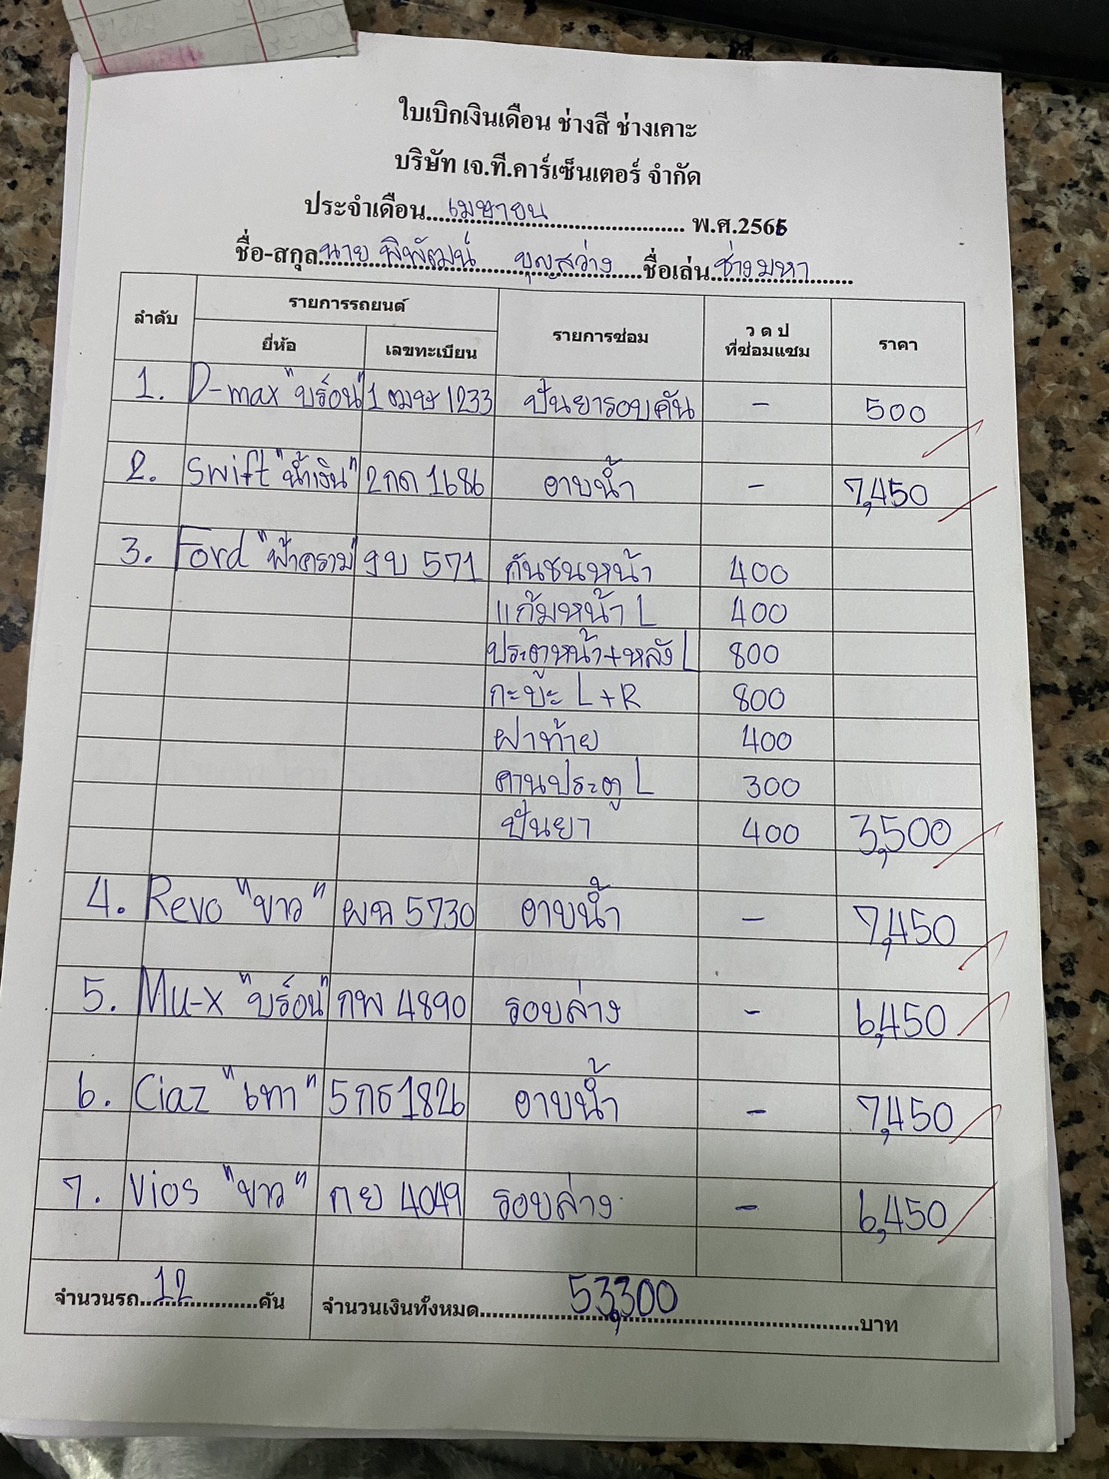 ใบเบิกเงินเดือน ช่างสี ช่างเคาะ
บริษัท เจ.ที.คาร์เซ็นเตอร์ จำกัด
ประจำเดือน....เมษายน.... พ.ศ.2566
ชื่อ-สกุล นาย พิพัฒน์ บุญสว่าง ชื่อเล่น ช่างมหา
ลำดับ รายการรถยนต์ รายการซ่อม ว ด ป ที่ซ่อมแซม ราคา
ยี่ห้อ เลขทะเบียน
1. D-max "บร์อน" 1 ฒษ 1233 ปั่นยารอบคัน - 500
2. Swift "น้ำเงิน" 2 กด 1686 อาบน้ำ - 7,450
3. Ford "ฟ้าคราม" 571 กันชนหน้า 400
แก้มหน้า L 400
ประตูหน้า+หลัง L 800
กะบะ L+R 800
ฝาท้าย 400
คานประตู L 300
ปั่นยา 400 3,500
4. Revo "ขาว" ผฉ 5730 อาบน้ำ - 7,450
5. Mu-x "บร์อน" กพ 4890 รอบล่าง - 6,450
6. Ciaz "เทา" 5 กธ 1826 อาบน้ำ - 7,450
7. Vios "ขาว" กย 4049 รอบล่าง - 6,450
จำนวนรถ....12....คัน จำนวนเงินทั้งหมด....53,300....บาท